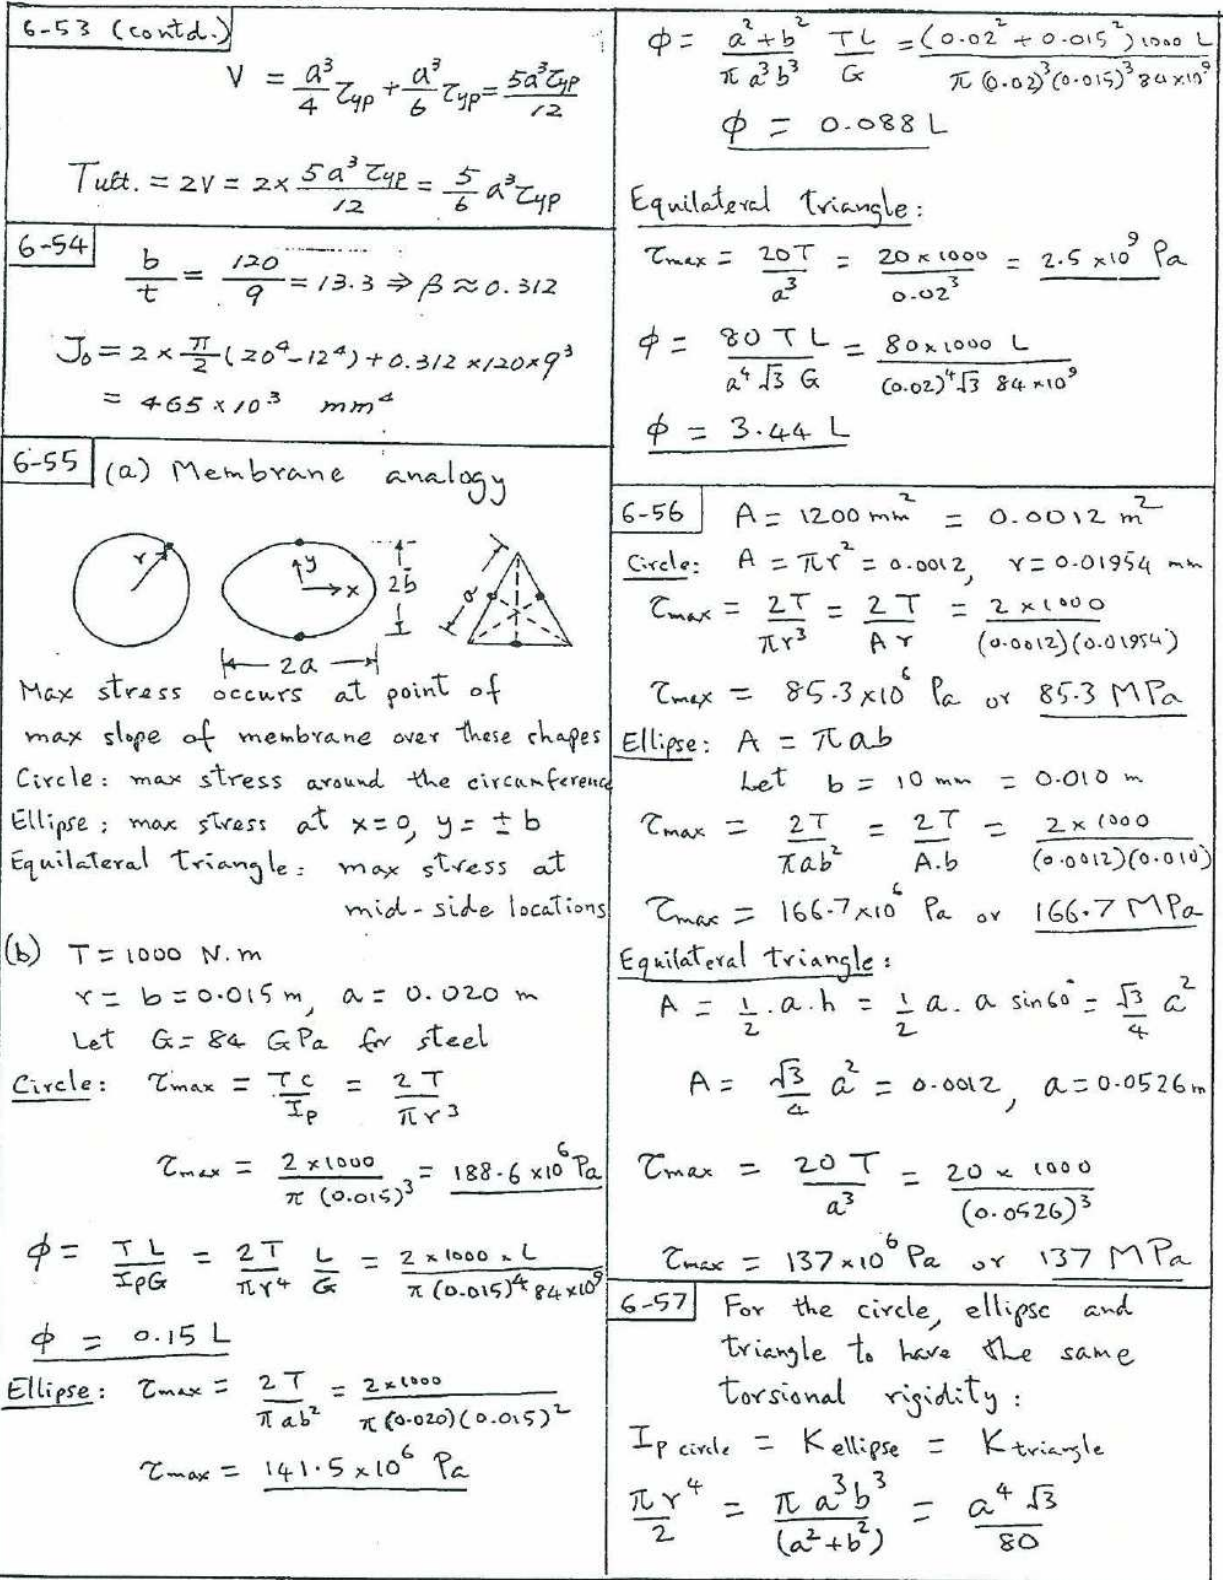 6-53 (contd.)
V = a³/4 τyp + a³/6 τyp = 5a³τyp/12
Tult. = 2V = 2 × 5a³τyp/12 = 5/6 a³τyp
6-54
b/t = 120/9 = 13.3 ⇒ β ≈ 0.312
J₀ = 2 × π/2 (20⁴ - 12⁴) + 0.312 × 120 × 9³
= 465 × 10³ mm⁴
6-55 (a) Membrane analogy
r
y
x
2b
2a
a
Max stress occurs at point of
max slope of membrane over these shapes
Circle: max stress around the circumference
Ellipse: max stress at x=0, y= ± b
Equilateral triangle: max stress at
mid-side locations
(b) T = 1000 N.m
r = b = 0.015 m, a = 0.020 m
Let G = 84 GPa for steel
Circle: τmax = Tc/Ip = 2T/πr³
τmax = 2×1000/π(0.015)³ = 188.6 × 10⁶ Pa
φ = TL/IpG = 2T/πr⁴ L/G = 2×1000×L/π(0.015)⁴ 84×10⁹
φ = 0.15 L
Ellipse: τmax = 2T/πab² = 2×1000/π(0.020)(0.015)²
τmax = 141.5 × 10⁶ Pa
φ = a²+b²/πa³b³ TL/G = (0.02² + 0.015²) 1000 L/π(0.02)³(0.015)³ 84×10⁹
φ = 0.088 L
Equilateral triangle:
τmax = 20T/a³ = 20×1000/0.02³ = 2.5 × 10⁹ Pa
φ = 80TL/a⁴√3 G = 80×1000 L/(0.02)⁴√3 84×10⁹
φ = 3.44 L
6-56 A = 1200 mm² = 0.0012 m²
Circle: A = πr² = 0.0012, r = 0.01954 mm
τmax = 2T/πr³ = 2T/Ar = 2×1000/(0.0012)(0.01954)
τmax = 85.3×10⁶ Pa or 85.3 MPa
Ellipse: A = πab
Let b = 10 mm = 0.010 m
τmax = 2T/πab² = 2T/A.b = 2×1000/(0.0012)(0.010)
τmax = 166.7×10⁶ Pa or 166.7 MPa
Equilateral triangle:
A = 1/2 . a.h = 1/2 a. a sin60° = √3/4 a²
A = √3/4 a² = 0.0012, a = 0.0526 m
τmax = 20T/a³ = 20 × 1000/(0.0526)³
τmax = 137×10⁶ Pa or 137 MPa
6-57 For the circle, ellipse and
triangle to have the same
torsional rigidity:
Ip circle = K ellipse = K triangle
πr⁴/2 = πa³b³/(a²+b²) = a⁴√3/80